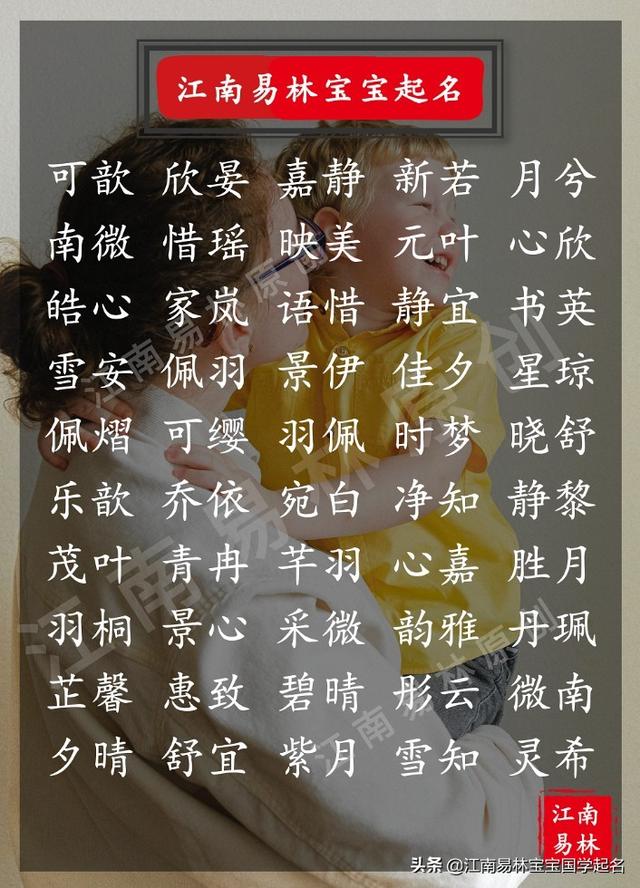 江南易林宝宝起名
可歆 欣晏 嘉静 新若 月兮
南微 惜瑶 映美 元叶 心欣
皓心 家岚 语惜 静宜 书英
雪安 佩羽 景伊 佳夕 星琼
佩熠 可缨 羽佩 时梦 晓舒
乐歆 乔依 宛白 净知 静黎
茂叶 青冉 芊羽 心嘉 胜月
羽桐 景心 采微 韵雅 丹珮
芷馨 惠致 碧晴 彤云 微南
夕晴 舒宜 紫月 雪知 灵希
江南易林原创
江南易林原创
江南易林原创
江南
易林
头条 @江南易林宝宝国学起名